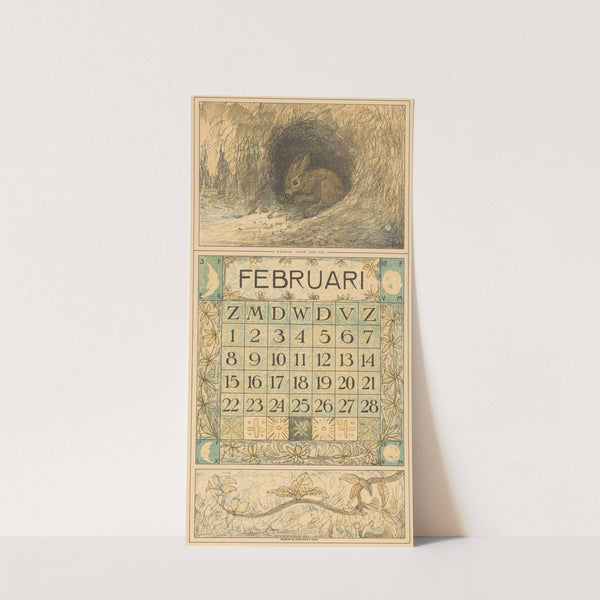 KONIJN VOOR ZIJN HOL
FEBRUARI
Z M D W D V Z
1 2 3 4 5 6 7
8 9 10 11 12 13 14
15 16 17 18 19 20 21
22 23 24 25 26 27 28